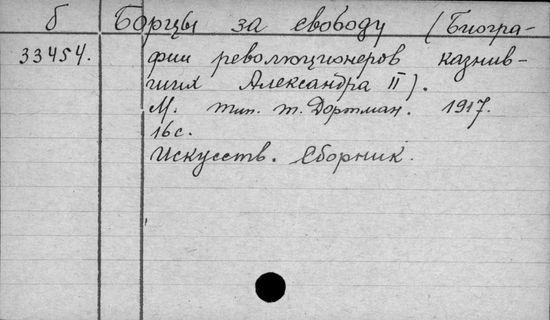 б Борцы за свободу (Биогра-
33454. фии революционеров казнив-
ших Александра II).
М. тип. т. Дортман. 1917.
16 с.
Искусств. Сборник.